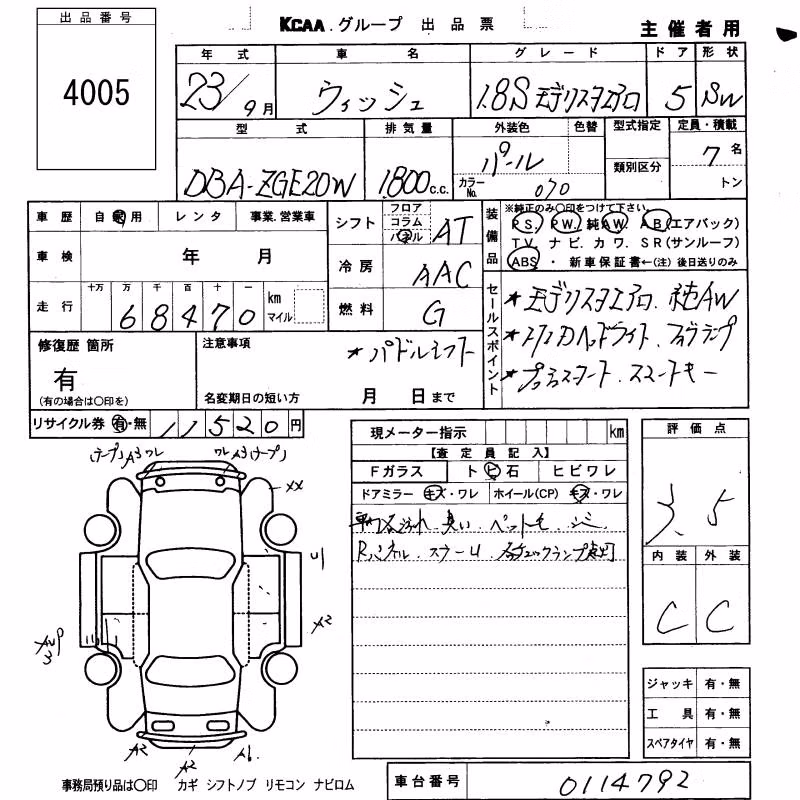 出品番号
KCAA.グループ 出品票
主催者用
4005
年式 車名 グレード ドア 形状
23/9月 ウィッシュ 1.8S モデリスタエアロ 5 SW
型式 排気量 外装色 色替 型式指定 定員・積載
DBA-ZGE20W 1800c.c. パール 7名
カラーNo. 070 類別区分 トン
車歴 自家用 レンタ 事業.営業車
シフト フロア コラム パネル AT
装備品 ※純正のみ〇印をつけて下さい。
PS. PW. 純AW. AB(エアバック)
TV. ナビ. カワ. SR(サンルーフ)
ABS ・ 新車保証書←(注)後日送りのみ
車検 年 月
冷房 AAC
走行 十万 万 千 百 十 一 km マイル
68470
燃料 G
セールスポイント
★モデリスタエアロ. 純AW
★HIDヘッドライト. フォグランプ
★プッシュスタート. スマートキー
修復歴 箇所
有
(有の場合は〇印を)
注意事項
★パドルシフト
名変期日の短い方 月 日まで
リサイクル券 有・無 11520円
現メーター指示 km
【査定員記入】
Fガラス ト ビ 石 ヒビワレ
ドアミラー キズ・ワレ ホイール(CP) キズ・ワレ
臭い. ペットモ
Rパネル.
評価点
3.5
内装 外装
C C
(ナープ) A3 ワレ ワレ A3 (ナープ)
XX
U1
A2
A2
3
A2
A2
A6
ジャッキ 有・無
工具 有・無
スペアタイヤ 有・無
事務局預り品は〇印 カギ シフトノブ リモコン ナビロム
車台番号 0114792